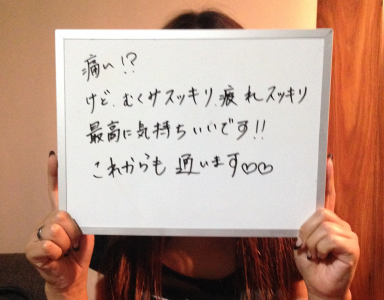 痛い!?
けど、むくみスッキリ、疲れスッキリ
最高に気持ちいいです!!
これからも通います♡♡